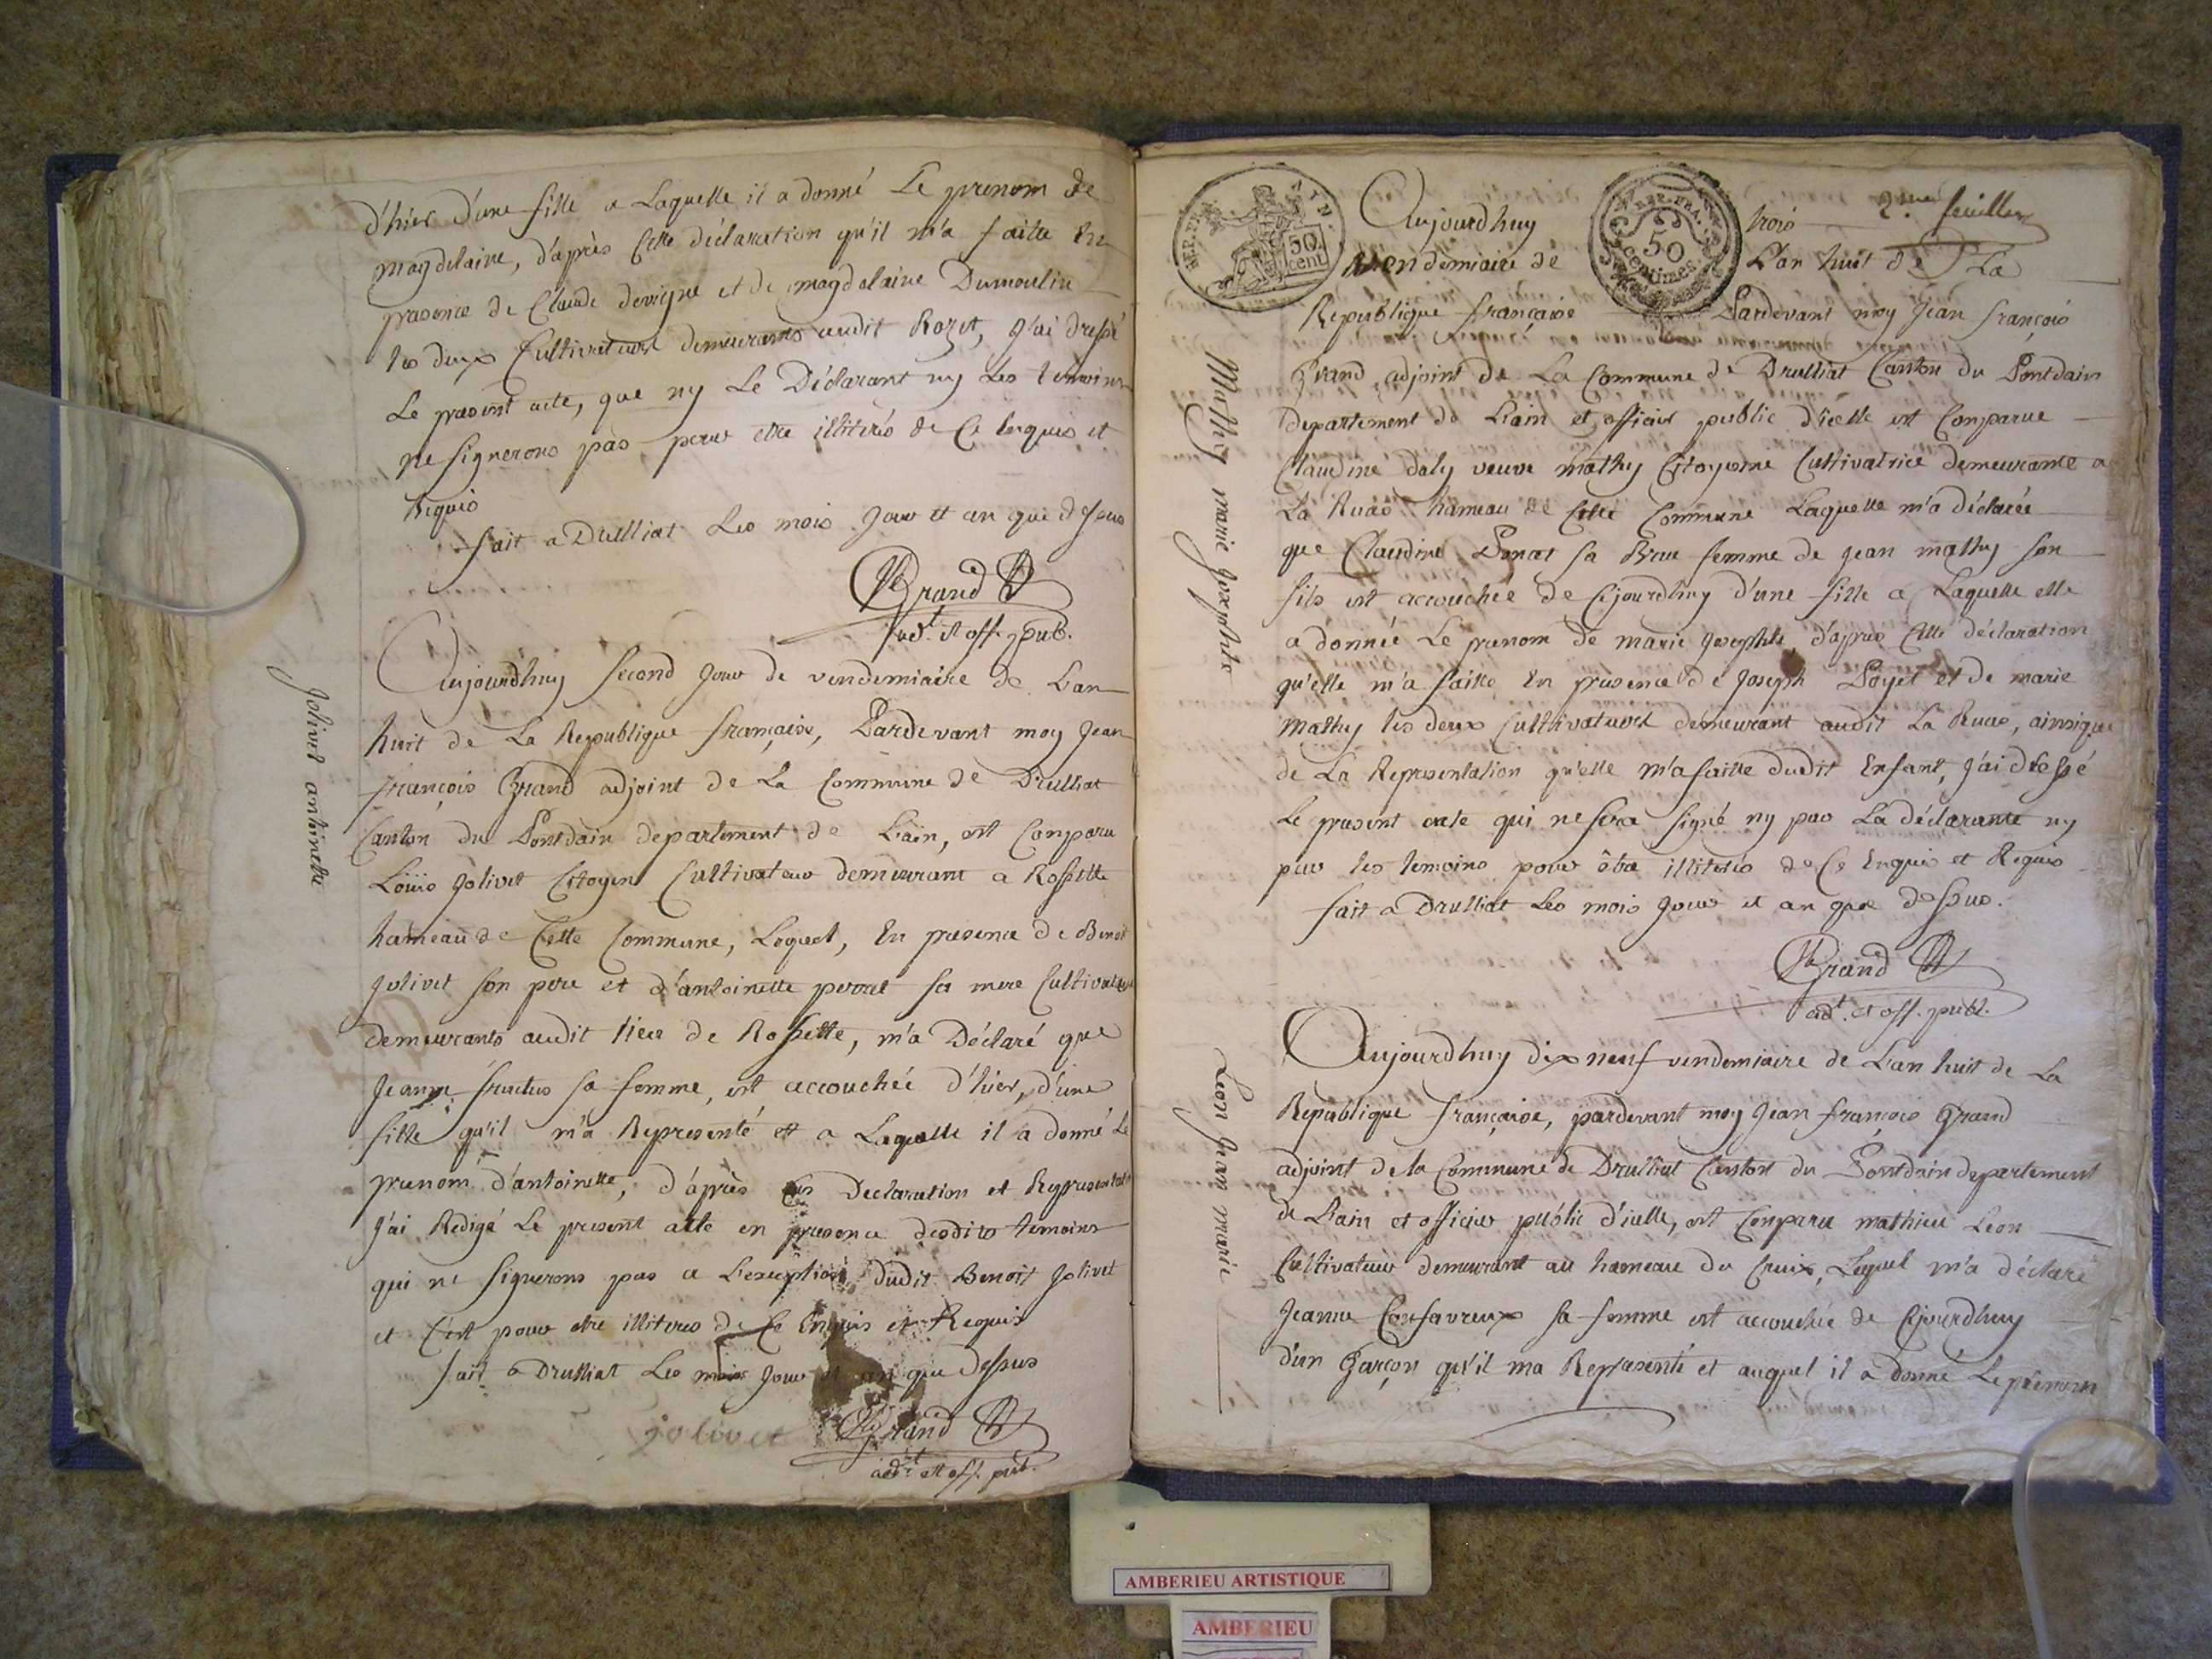 d'hier d'une fille a Laquelle il a donné Le prenom de
magdelaine, d'après Cette déclaration qu'il m'a faitte En
presence de Claude devigne et de magdelaine Dumoulin
les deux Cultivateurs demeurants audit Rozet, J'ai dressé
Le present acte, que ny Le Déclarant ny Les temoins
ne signerons pas pour etre illitérés de Ce Enquis et
Requis
fait a Drulliat Les mois Jour et an que dessus
Grand
adt. et off. pub.
Jolivet antoinette
Aujourdhuy second Jour de vendemiaire de L'an
huit de La Republique française, Pardevant moy Jean
françois Grand adjoint de La Commune de Drulliat
Canton du Pontdain departement de L'ain, est Comparu
Loüis Jolivet Citoyen Cultivateur demeurant a Rossette
hameau de Cette Commune, Lequel, En presence de Benoit
Jolivet son pere et d'antoinette perret sa mere Cultivateurs
demeurants audit lieu de Rossette, m'a Déclaré que
Jeanne fructus sa femme, est accouchée d'hier, d'une
fille qu'il m'a Representé et a Laquelle il a donné Le
prenom d'antoinette, d'après Declaration et Representation
J'ai Redigé Le present acte en presence desdits temoins
qui ne signerons pas a L'exception dudit Benoit Jolivet
et C'est pour etre illiterés de Ce Enquis et Requis
fait a Drulliat Les mois Jour et an que Dessus
jolivet
Grand
adt. et off. pub.
2me. feuillet
REP. FRA.
50.
cent.
REP. FRA.
50
centimes.
Aujourdhuy trois
Vendemiaire de L'an huit de La
Republique française Pardevant moy Jean françois
Grand adjoint de La Commune de Drulliat Canton du Pontdain
departement de L'ain et officier public d'icelle est Comparue
Claudine daly veuve mathy Citoyenne Cultivatrice demeurante a
La Ruaz hameau de Cette Commune Laquelle m'a déclarée
que Claudine Donat sa Brue femme de Jean mathy son
fils est accouchée de Cejourdhuy d'une fille a Laquelle elle
a donnée Le prenom de marie Josephte, d'après Cette déclaration
qu'elle m'a faitte En presence de Joseph Poyet et de marie
Mathy les deux Cultivateurs demeurant audit La Ruaz, ainsique
de La Representation qu'elle m'a faitte dudit Enfant, J'ai dressé
Le present acte qui ne sera signé ny par La déclarante ny
par les temoins pour être illiterés de Ce Enquis et Requis
fait a Drulliat Les mois Jour et an que dessus.
Grand
adt. et off. publ.
Mathy marie Josephte
Aujourdhuy dix neuf vendemiaire de L'an huit de La
Republique française, pardevant moy Jean françois Grand
adjoint de la Commune de Drulliat Canton du Pontdain departement
de L'ain et officier public d'icelle, est Comparu mathieu Leon
Cultivateur demeurant au hameau du Cruix, Lequel m'a déclaré
Jeanne Confavreux sa femme est accouchée de Cejourdhuy
d'un Garçon qu'il ma Representé et auquel il a donné Le prenom
Leon Jean marie
AMBERIEU ARTISTIQUE
AMBERIEU